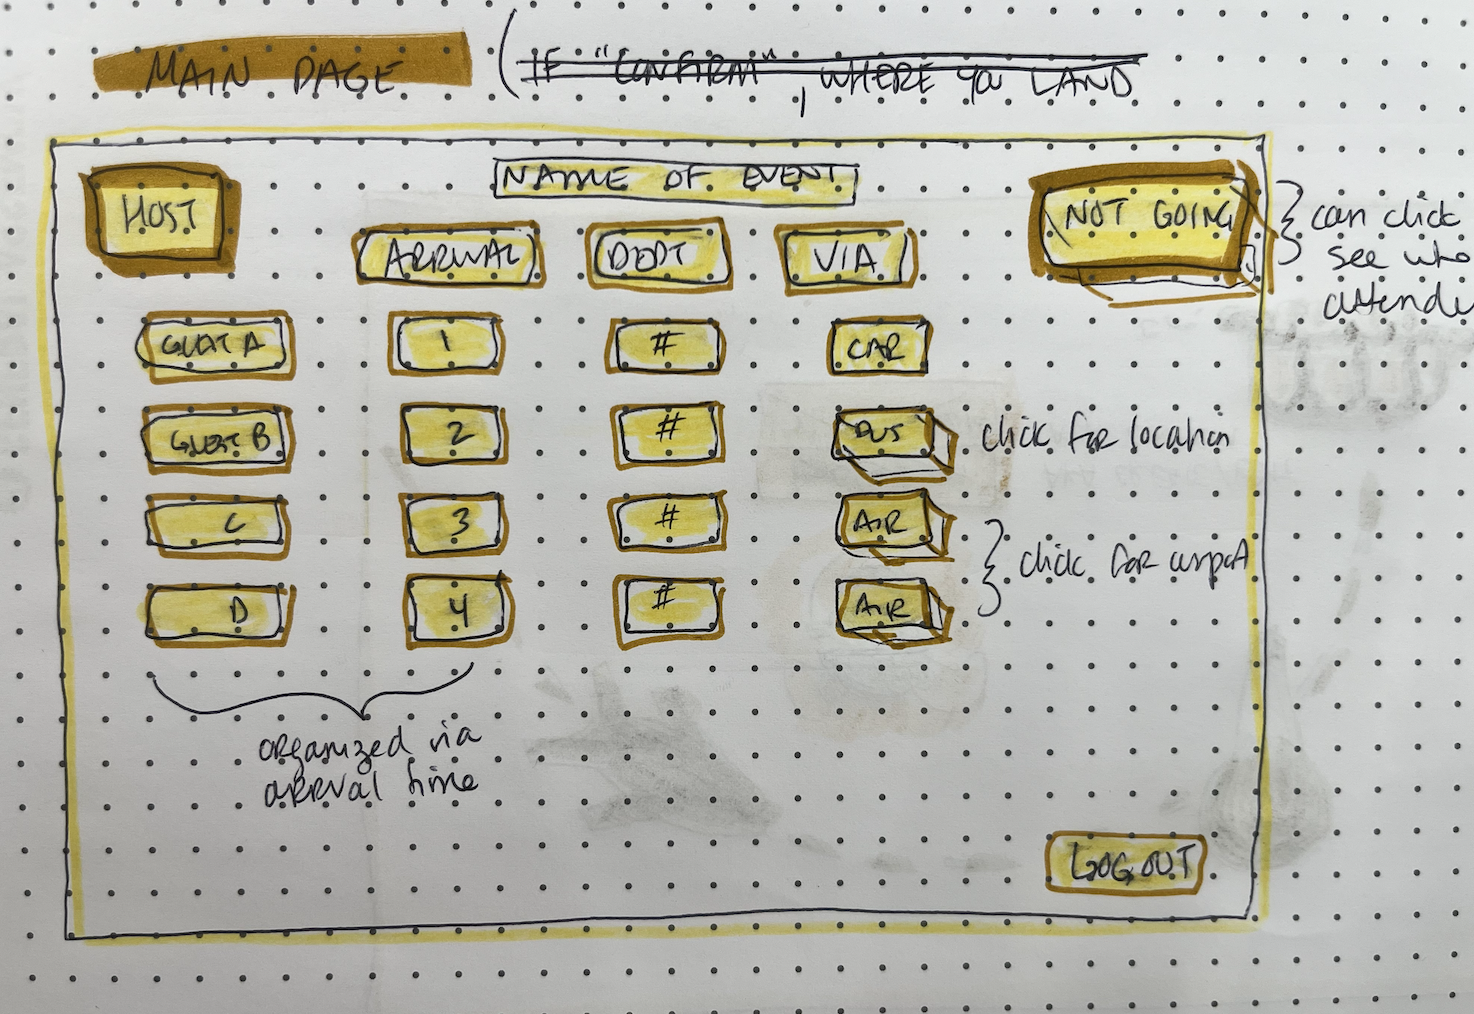 MAIN PAGE
(IF "CONFIRM", WHERE YOU LAND
NAME OF EVENT
HOST
NOT GOING
can click
see who
attende
ARRIVAL
DEPT
VIA
GUEST A
1
#
CAR
GUEST B
2
#
BUS
click for location
C
3
#
AIR
click for airport
D
4
#
AIR
organized via
arrival time
LOGOUT